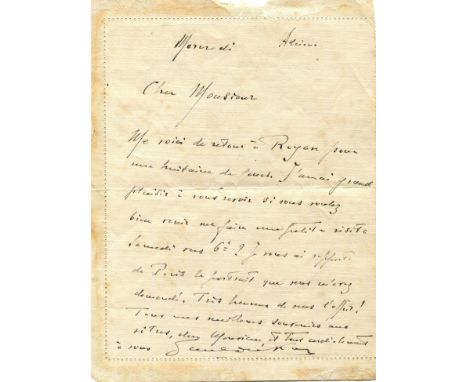 Mercredi
Cher Monsieur
Me voici de retour à Royan pour
une huitaine de jours. J'aurai grand
plaisir à vous revoir si vous voulez
bien venir me faire une petite visite
Samedi vers 6h ? Je vous ai rapporté
de Paris le portrait que vous m'avez
demandé. Très heureux de vous l'offrir !
Tous mes meilleurs souvenirs aux
vôtres, cher Monsieur, et très cordialement
à vous